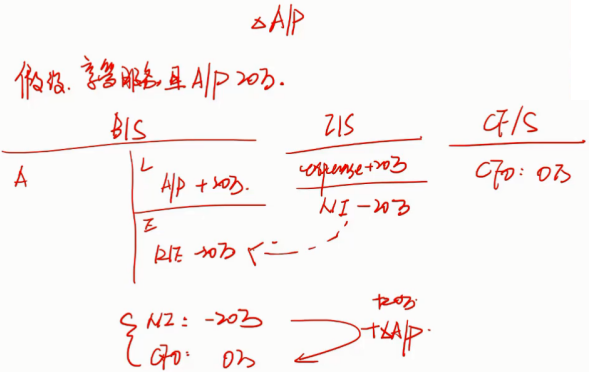 △A/P
假设. 享受服务且 A/P 20万.
B/S I/S CF/S
A L A/P +20万. expense +20万 CFO: 0万
NI -20万
E R/E -20万
NI: -20万 +20万
+△A/P.
CFO: 0万